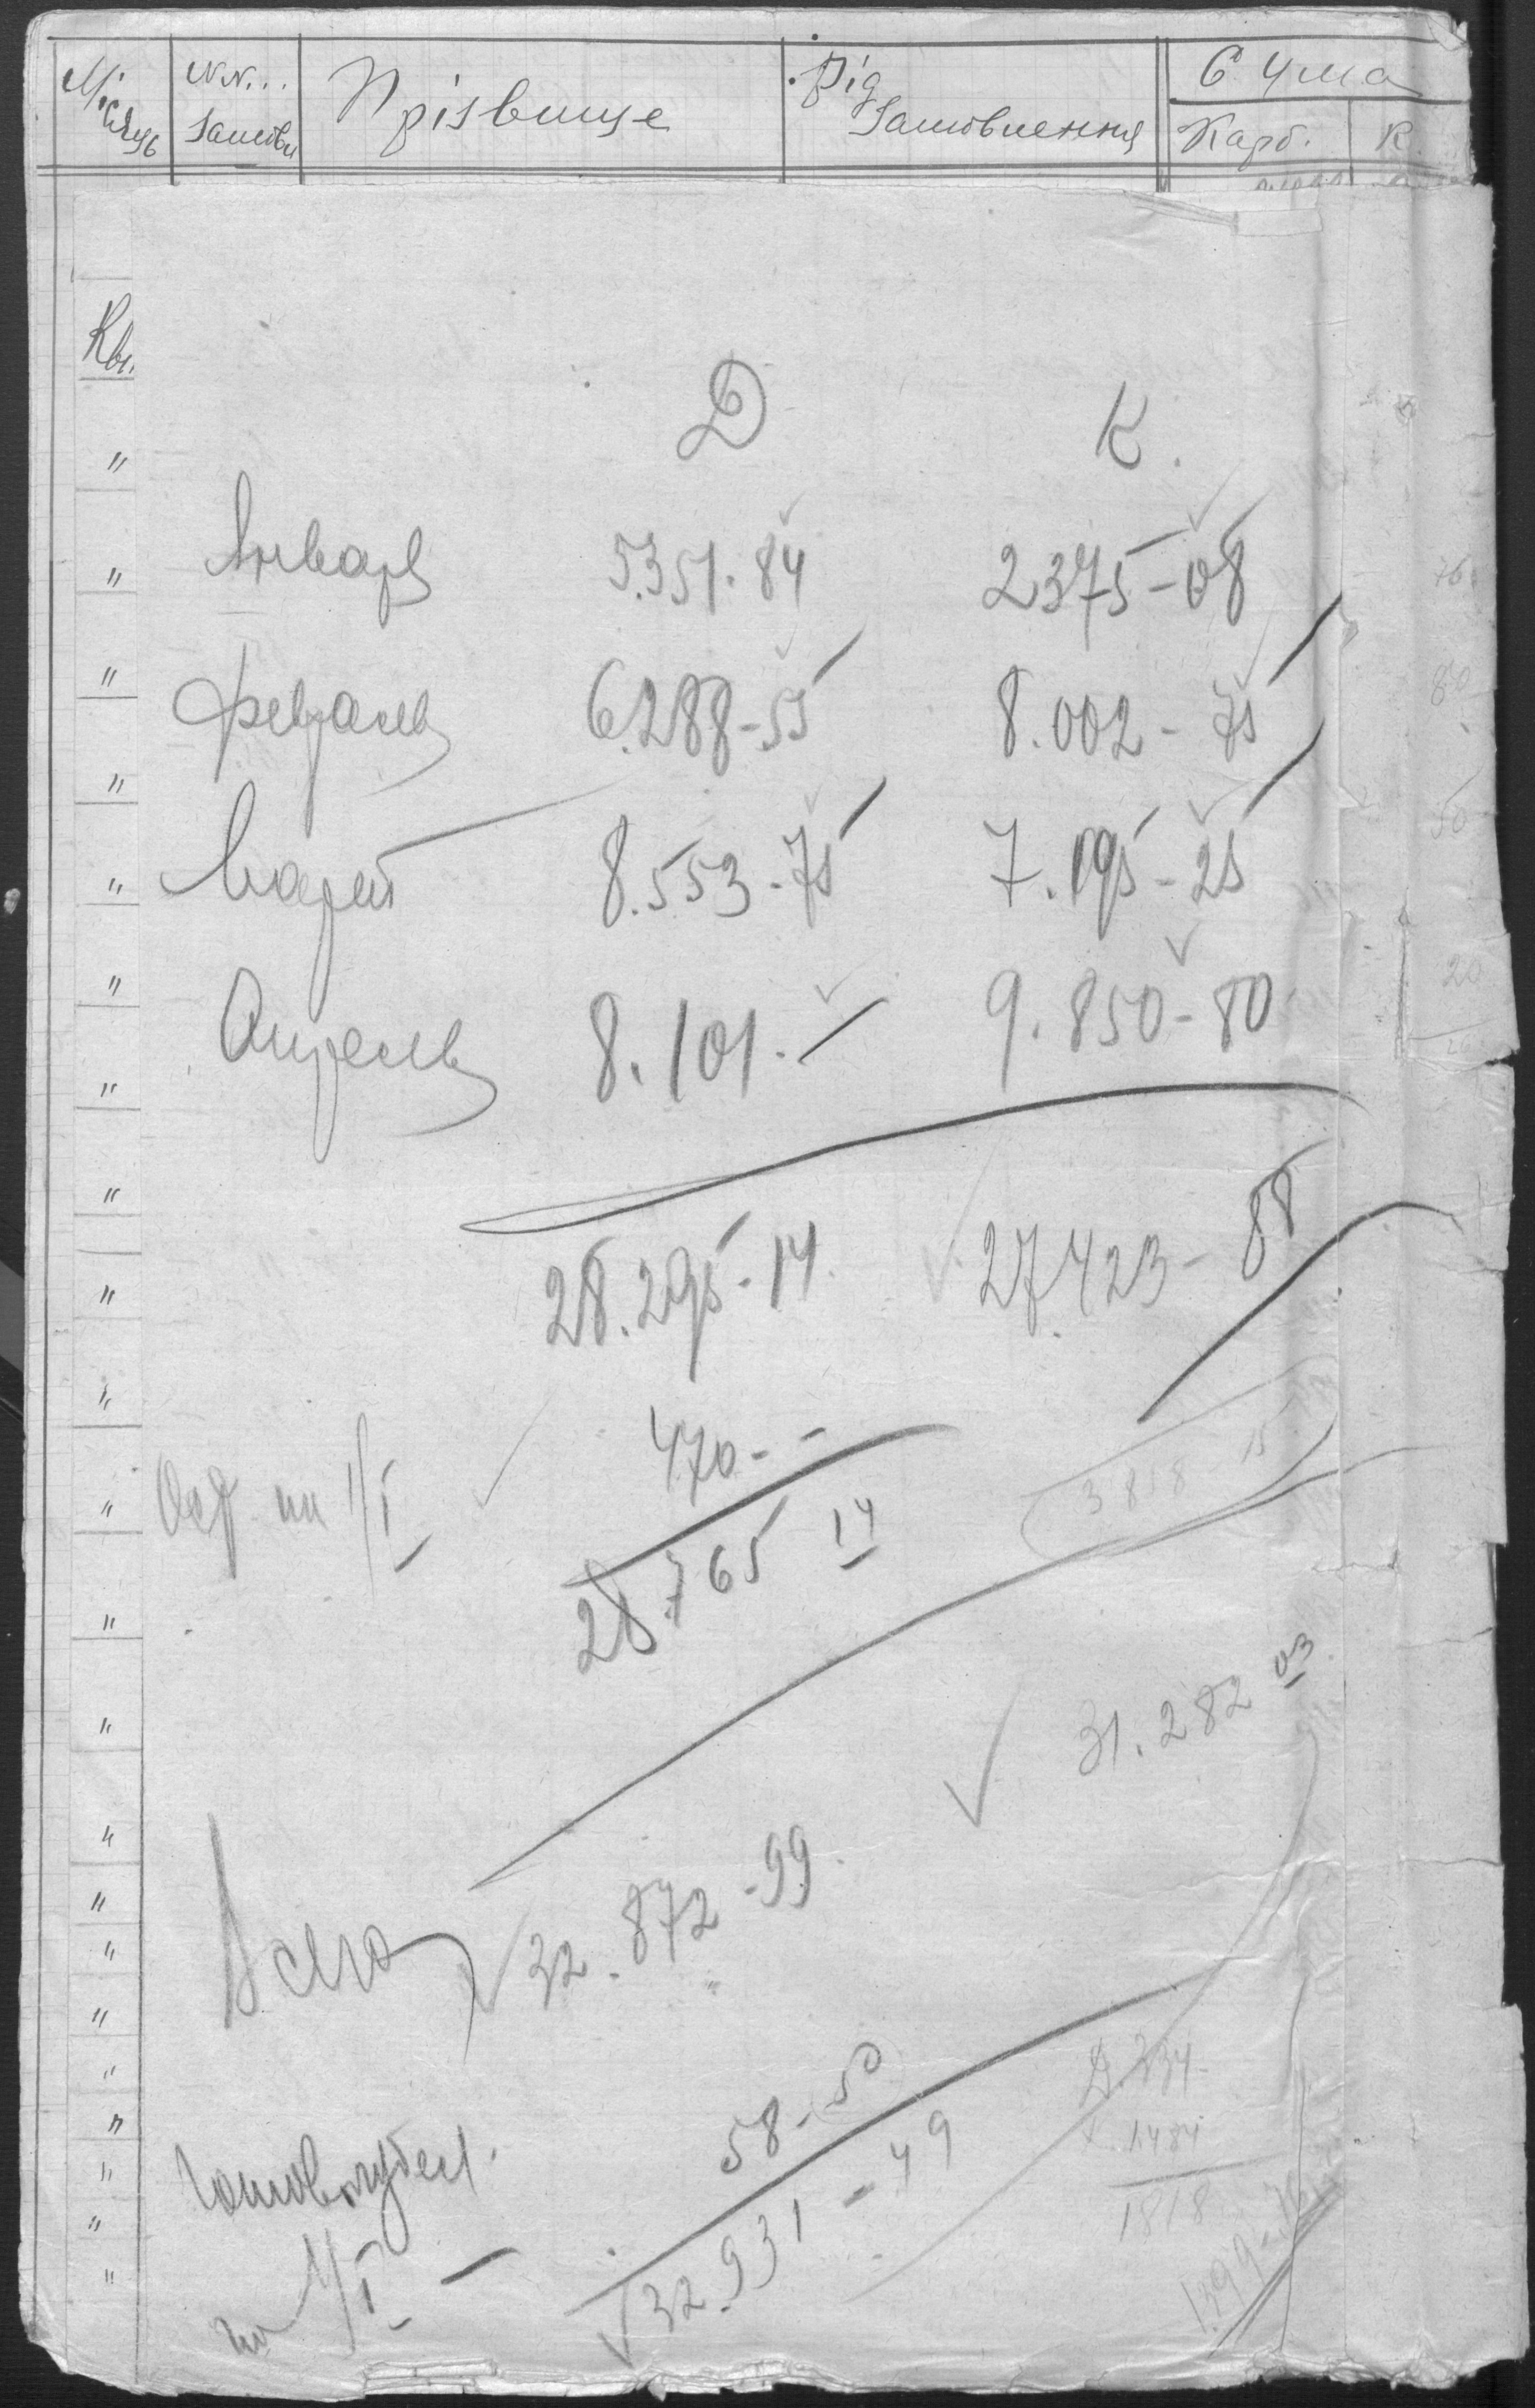 Місяць №№... Замовл Прізвище Рід Замовлення Сума
Карб. К.
Кві.
"
Д К.
" Январь 5.351.84 2375-08
" февраль 6.288-55 8.002-75
"
" Март 8.553.75 7.195-25
" Апрель 8.101.- 9.850-80
"
"
28.295-14 27.423-88
"
" 470.-
" Ост на 1/I 28.765 14 3858-15
"
" 31.282 03
"
" Всего 32.872-99
"
"
" 58-50 334-
" 1484
" 32.931-49 1818
" на 1/I - 1399-